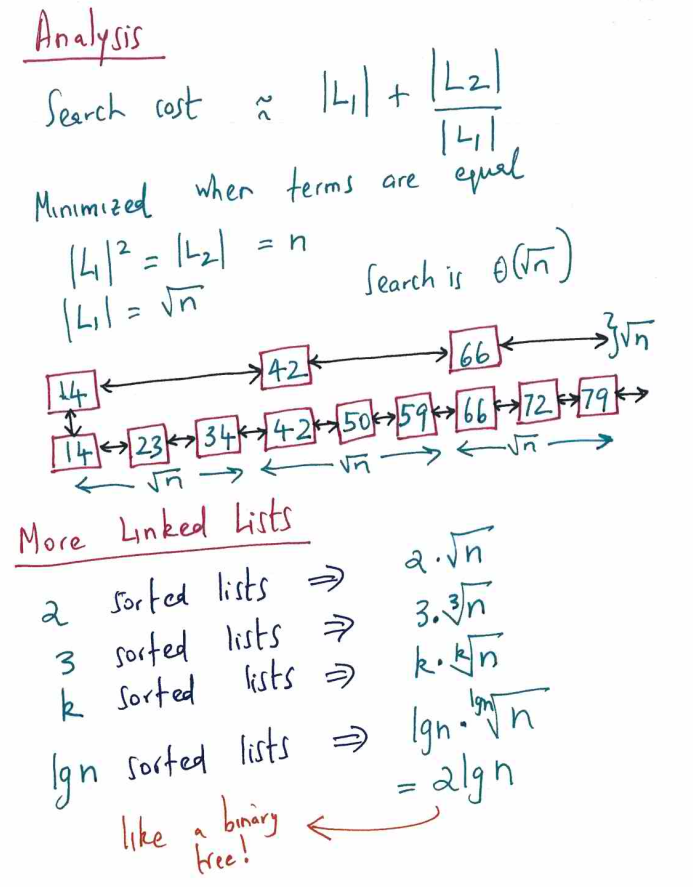 Analysis
Search cost ≈ |L₁| + |L₂| / |L₁|
Minimized when terms are equal
|L₁|² = |L₂| = n
|L₁| = √n
Search is θ(√n)
14 42 66 } √n
14 23 34 42 50 59 66 72 79
√n √n √n
More Linked Lists
2 sorted lists ⇒ 2·√n
3 sorted lists ⇒ 3·∛n
k sorted lists ⇒ k·ᵏ√n
lgn sorted lists ⇒ lgn·ˡᵍⁿ√n
= 2lgn
like a binary
tree!